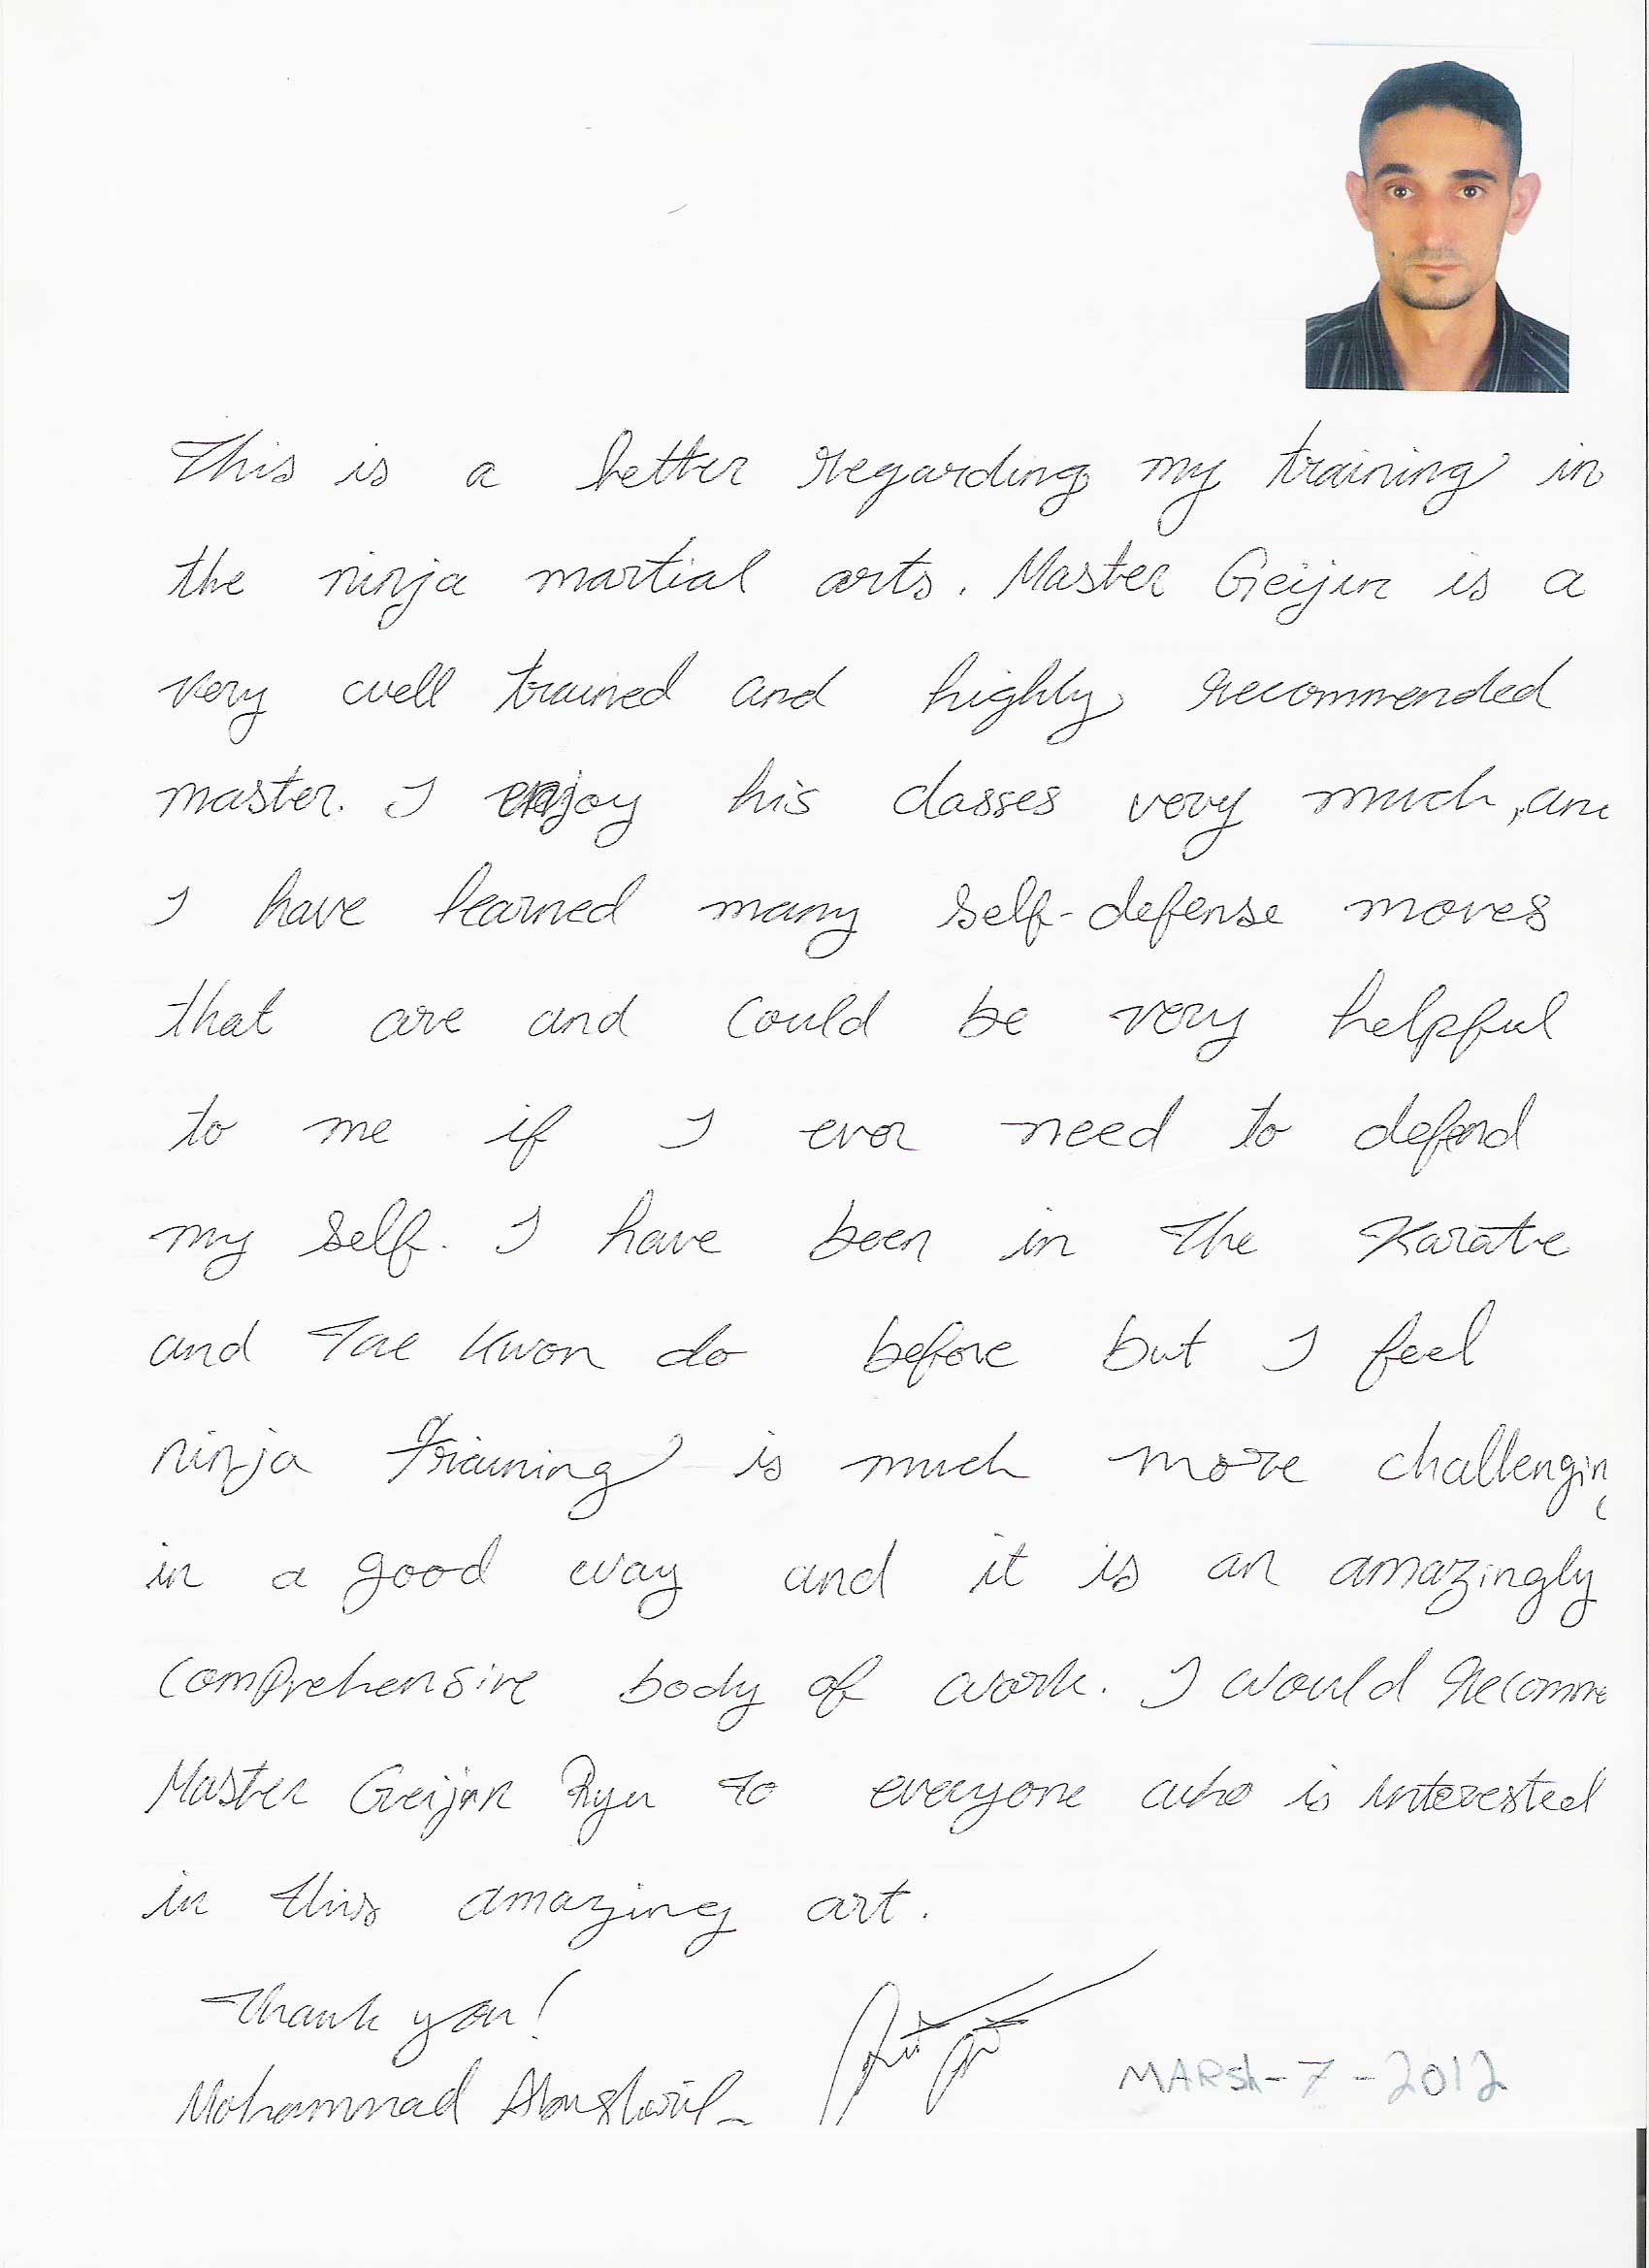 This is a letter regarding my training in
the ninja martial arts. Master Geijin is a
very well trained and highly recommended
master. I enjoy his classes very much, an
I have learned many self-defense moves
that are and could be very helpful
to me if I ever need to defend
my self. I have been in the Karate
and Tae Kwon do before but I feel
ninja training is much more challengin
in a good way and it is an amazingly
comprehensive body of work. I would recomm
Master Geijin Ryu to everyone who is interested
in this amazing art.
Thank you!
Mohammad
MARSh-7-2012